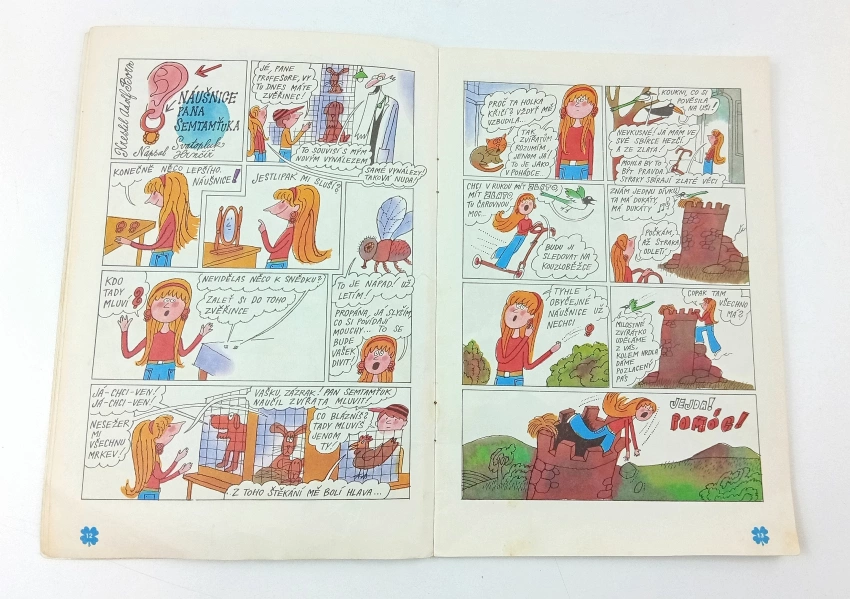 Kreslil Adolf Born
NÁUŠNICE
PANA
ŠEMTAMŤUKA
Napsal Svatopluk
Hrnčíř
JÉ, PANE
PROFESORE, VY
TU DNES MÁTE
ZVĚŘINEC!
TO SOUVISÍ S MÝM
NOVÝM VYNÁLEZEM
SAMÉ VYNÁLEZY
TAKOVÁ NUDA!
KONEČNĚ NĚCO LEPŠÍHO.
NÁUŠNICE!
JESTLIPAK MI SLUŠÍ?
TO JE NÁPAD! UŽ
LETÍM!
KDO
TADY
MLUVÍ?
NEVIDĚLAS NĚCO K SNĚDKU?
ZALEŤ SI DO TOHO
ZVĚŘINCE
PROPÁNA, JÁ SLYŠÍM,
CO SI POVÍDAJÍ
MOUCHY... TO SE
BUDE
VAŠEK
DIVIT!
JÁ-CHCI-VEN!
JÁ-CHCI-VEN!
NESEŽER
MI
VŠECHNU
MRKEV!
VAŠKU, ZÁZRAK! PAN ŠEMTAMŤUK
NAUČIL ZVÍŘATA MLUVIT!
CO BLÁZNÍŠ?
TADY MLUVÍŠ
JENOM
TY!
Z TOHO ŠTĚKÁNÍ MĚ BOLÍ HLAVA...
12
PROČ TA HOLKA
KŘIČÍ? VŽDYŤ MĚ
VZBUDILA...
TAK
ZVÍŘATŮM
ROZUMÍM
JENOM JÁ!
TO JE JAKO
V POHÁDCE...
KOUKNI, CO SI
POVĚSILA
NA UŠI!
NEVKUSNÉ! JÁ MÁM VE
SVÉ SBÍRCE HEZČÍ
A ZE ZLATA!
MOHLA BY TO
BÝT PRAVDA.
STRAKY SBÍRAJÍ ZLATÉ VĚCI
MÍT
TU ČAROVNOU
MOC...
BUDU JI
SLEDOVAT NA
KOUZLOBĚŽCE
ZNÁM JEDNU DÍVKU,
TA MÁ DUKÁTY,
MÁ DUKÁTY
POČKÁM,
AŽ STRAKA
ODLETÍ!
TYHLE
OBYČEJNÉ
NÁUŠNICE UŽ
NECHCI
COPAK TAM
VŠECHNO
MÁ?
MILOSTNÉ
ZVÍŘÁTKO
UDĚLÁME
Z VÁS,
KOLEM HRDLA
DÁME
POZLACENÝ
PÁS
JEJDA!
POMÓC!
13